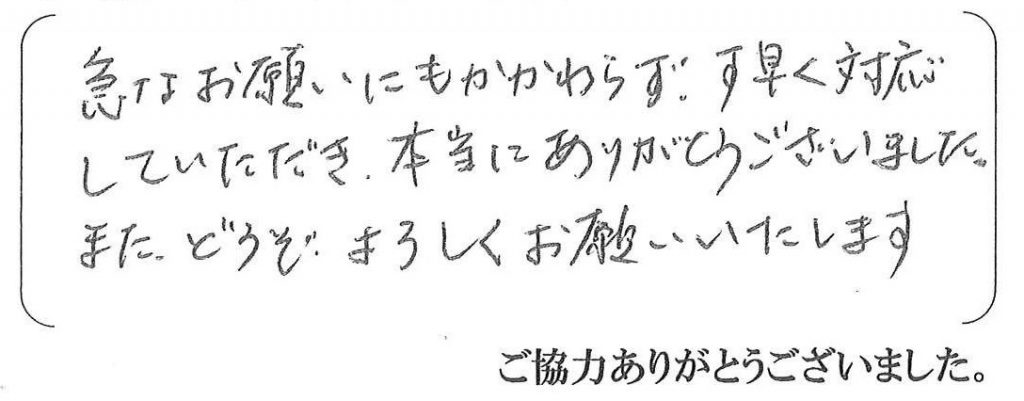 急なお願いにもかかわらず、す早く対応
していただき、本当にありがとうございました。
また、どうぞ、よろしくお願いいたします
ご協力ありがとうございました。